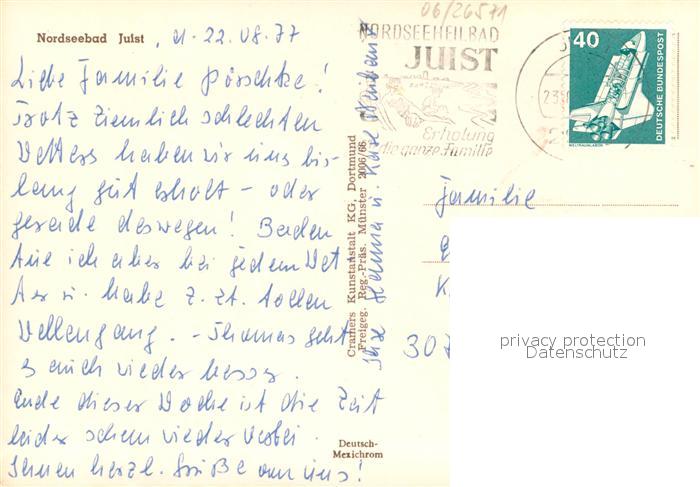 Nordseebad Juist, d. 22.08.77
Liebe Familie Pörschke!
Trotz ziemlich schlechten
Wetters haben wir uns bis-
lang gut erholt - oder
gerade deswegen! Baden
tue ich aber bei jedem Wet
ter u. habe z. Zt. tollen
Wellengang. - Thomas geht
es auch wieder besser.
Ende dieser Woche ist die Zeit
leider schon wieder vorbei.
Ihnen herzl. Grüße von uns!
Ihre Hanna u. Karse
Cramers Kunstanstalt KG, Dortmund
Freigeg. Reg.-Präs. Münster 2006/66
Deutsch-
Mexichrom
06/26571
NORDSEEHEILBAD
JUIST
Erholung
für die ganze Familie
40
DEUTSCHE BUNDESPOST
WELTRAUMLABOR
Familie
307
privacy protection
Datenschutz